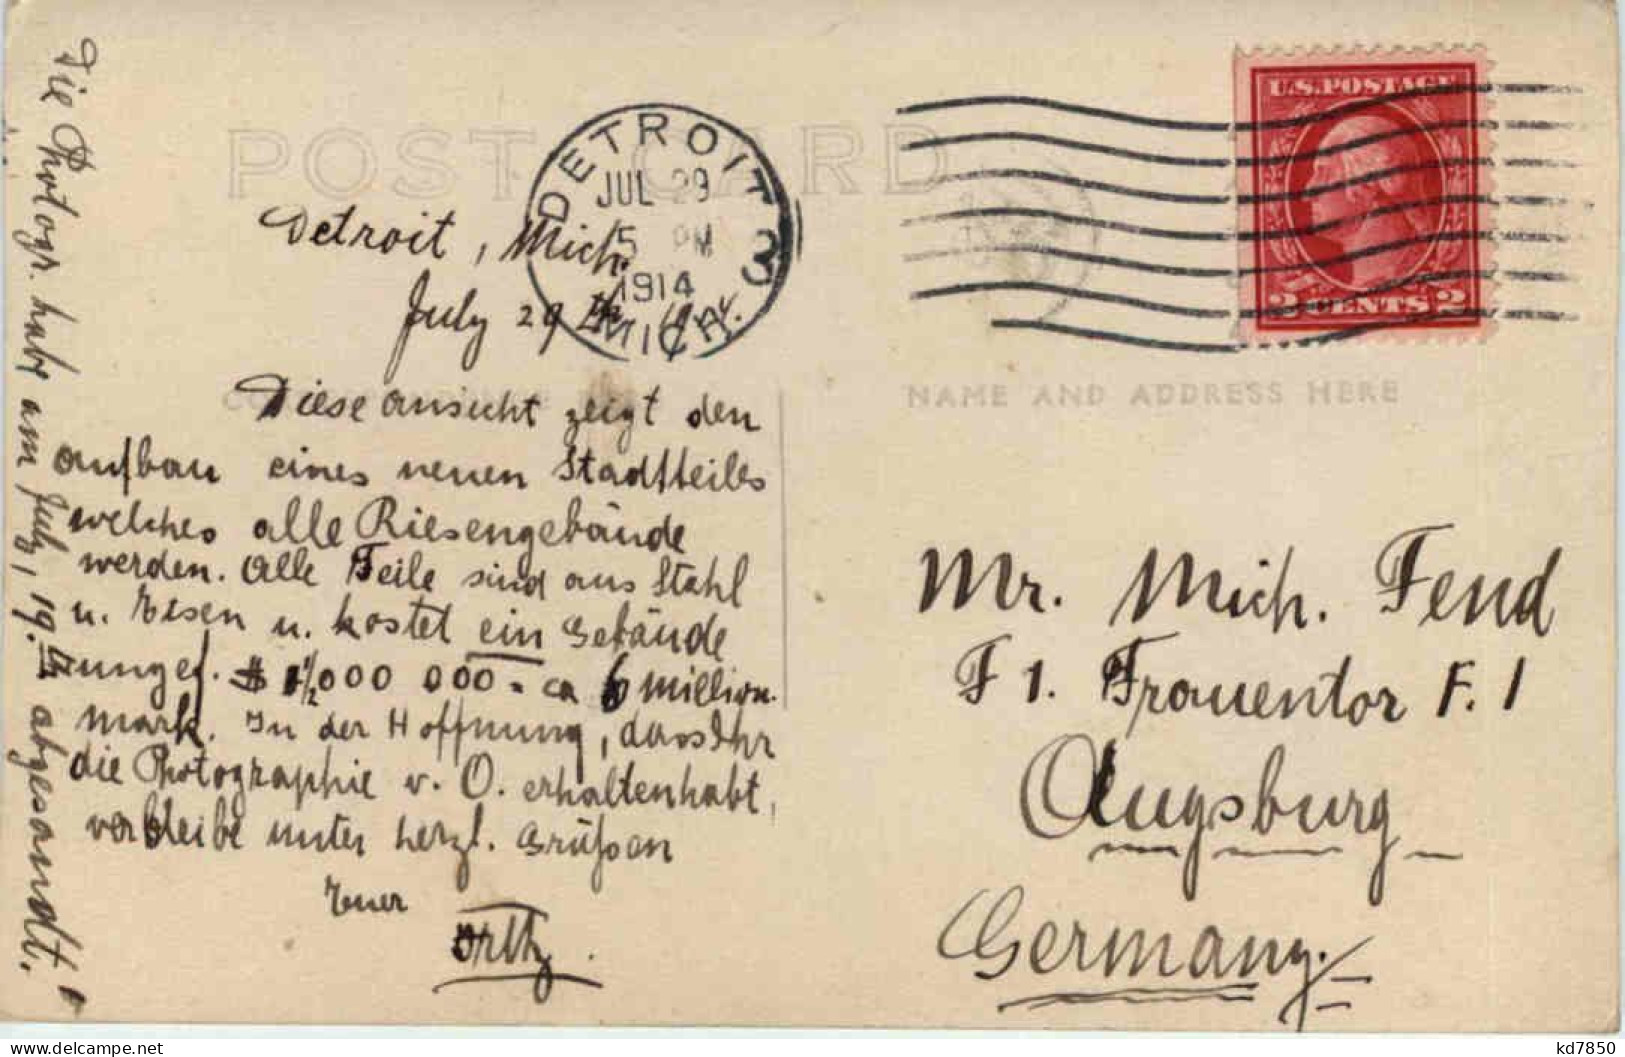 POST CARD
DETROIT 3
JUL 29
5 PM
1914
MICH.
U.S. POSTAGE
2 CENTS 2
Detroit, Mich.
July 29th
Diese ansicht zeigt den
aufbau eines neuen Stadtteiles
welches alle Riesengebäude
werden. Alle Teile sind aus Stahl
u. Eisen u. kostet ein Gebäude
ungef. $ 1½000 000.- ca 6 million.
mark. In der Hoffnung, dass Ihr
die Photographie v. O. erhalten habt,
verbleibe unter herzl. Grüßen
Euer
Die Photogr. habe am July, 19. abgesandt.
NAME AND ADDRESS HERE
Mr. Mich. Fend
F 1. Frauentor F. 1
Augsburg
Germany.
kd7850